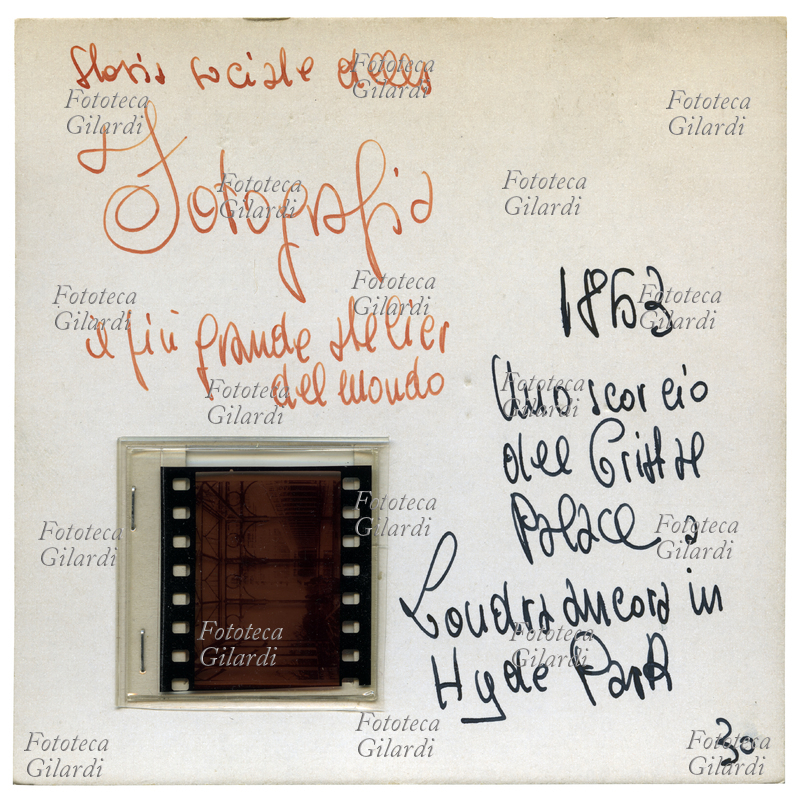 storia sociale della
Fotografia
il più grande atelier
del mondo
1853
Uno scorcio
del Cristal
Palace a
Londra ancora in
Hyde Park
30
Fototeca
Gilardi
Fototeca
Gilardi
Fototeca
Gilardi
Fototeca
Gilardi
Fototeca
Gilardi
Fototeca
Gilardi
Fototeca
Gilardi
Fototeca
Gilardi
Fototeca
Gilardi
Fototeca
Gilardi
Fototeca
Gilardi
Fototeca
Gilardi
Fototeca
Gilardi
Fototeca
Gilardi
Fototeca
Gilardi
Fototeca
Gilardi
Fototeca
Gilardi
Fototeca
Gilardi